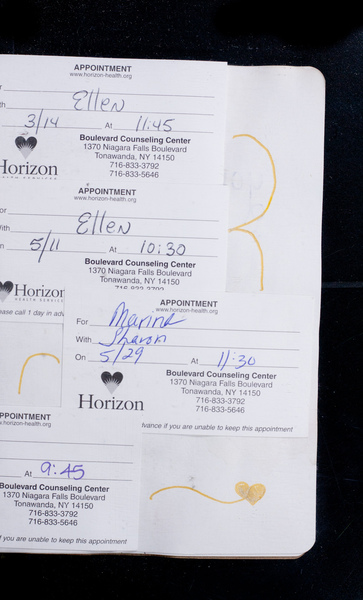 APPOINTMENT
www.horizon-health.org
Ellen
3/14 At 11:45
Boulevard Counseling Center
1370 Niagara Falls Boulevard
Tonawanda, NY 14150
716-833-3792
716-833-5646
Horizon
APPOINTMENT
www.horizon-health.org
With Ellen
5/11 At 10:30
Boulevard Counseling Center
1370 Niagara Falls Boulevard
Tonawanda, NY 14150
716-833-3792
Horizon
HEALTH SERVICES
ease call 1 day in adv
APPOINTMENT
www.horizon-health.org
For Marine
With Sharon
On 5/29 At 11:30
Boulevard Counseling Center
1370 Niagara Falls Boulevard
Tonawanda, NY 14150
716-833-3792
716-833-5646
Horizon
vance if you are unable to keep this appointment
APPOINTMENT
www.horizon-health.org
At 9:45
Boulevard Counseling Center
1370 Niagara Falls Boulevard
Tonawanda, NY 14150
716-833-3792
716-833-5646
if you are unable to keep this appointment